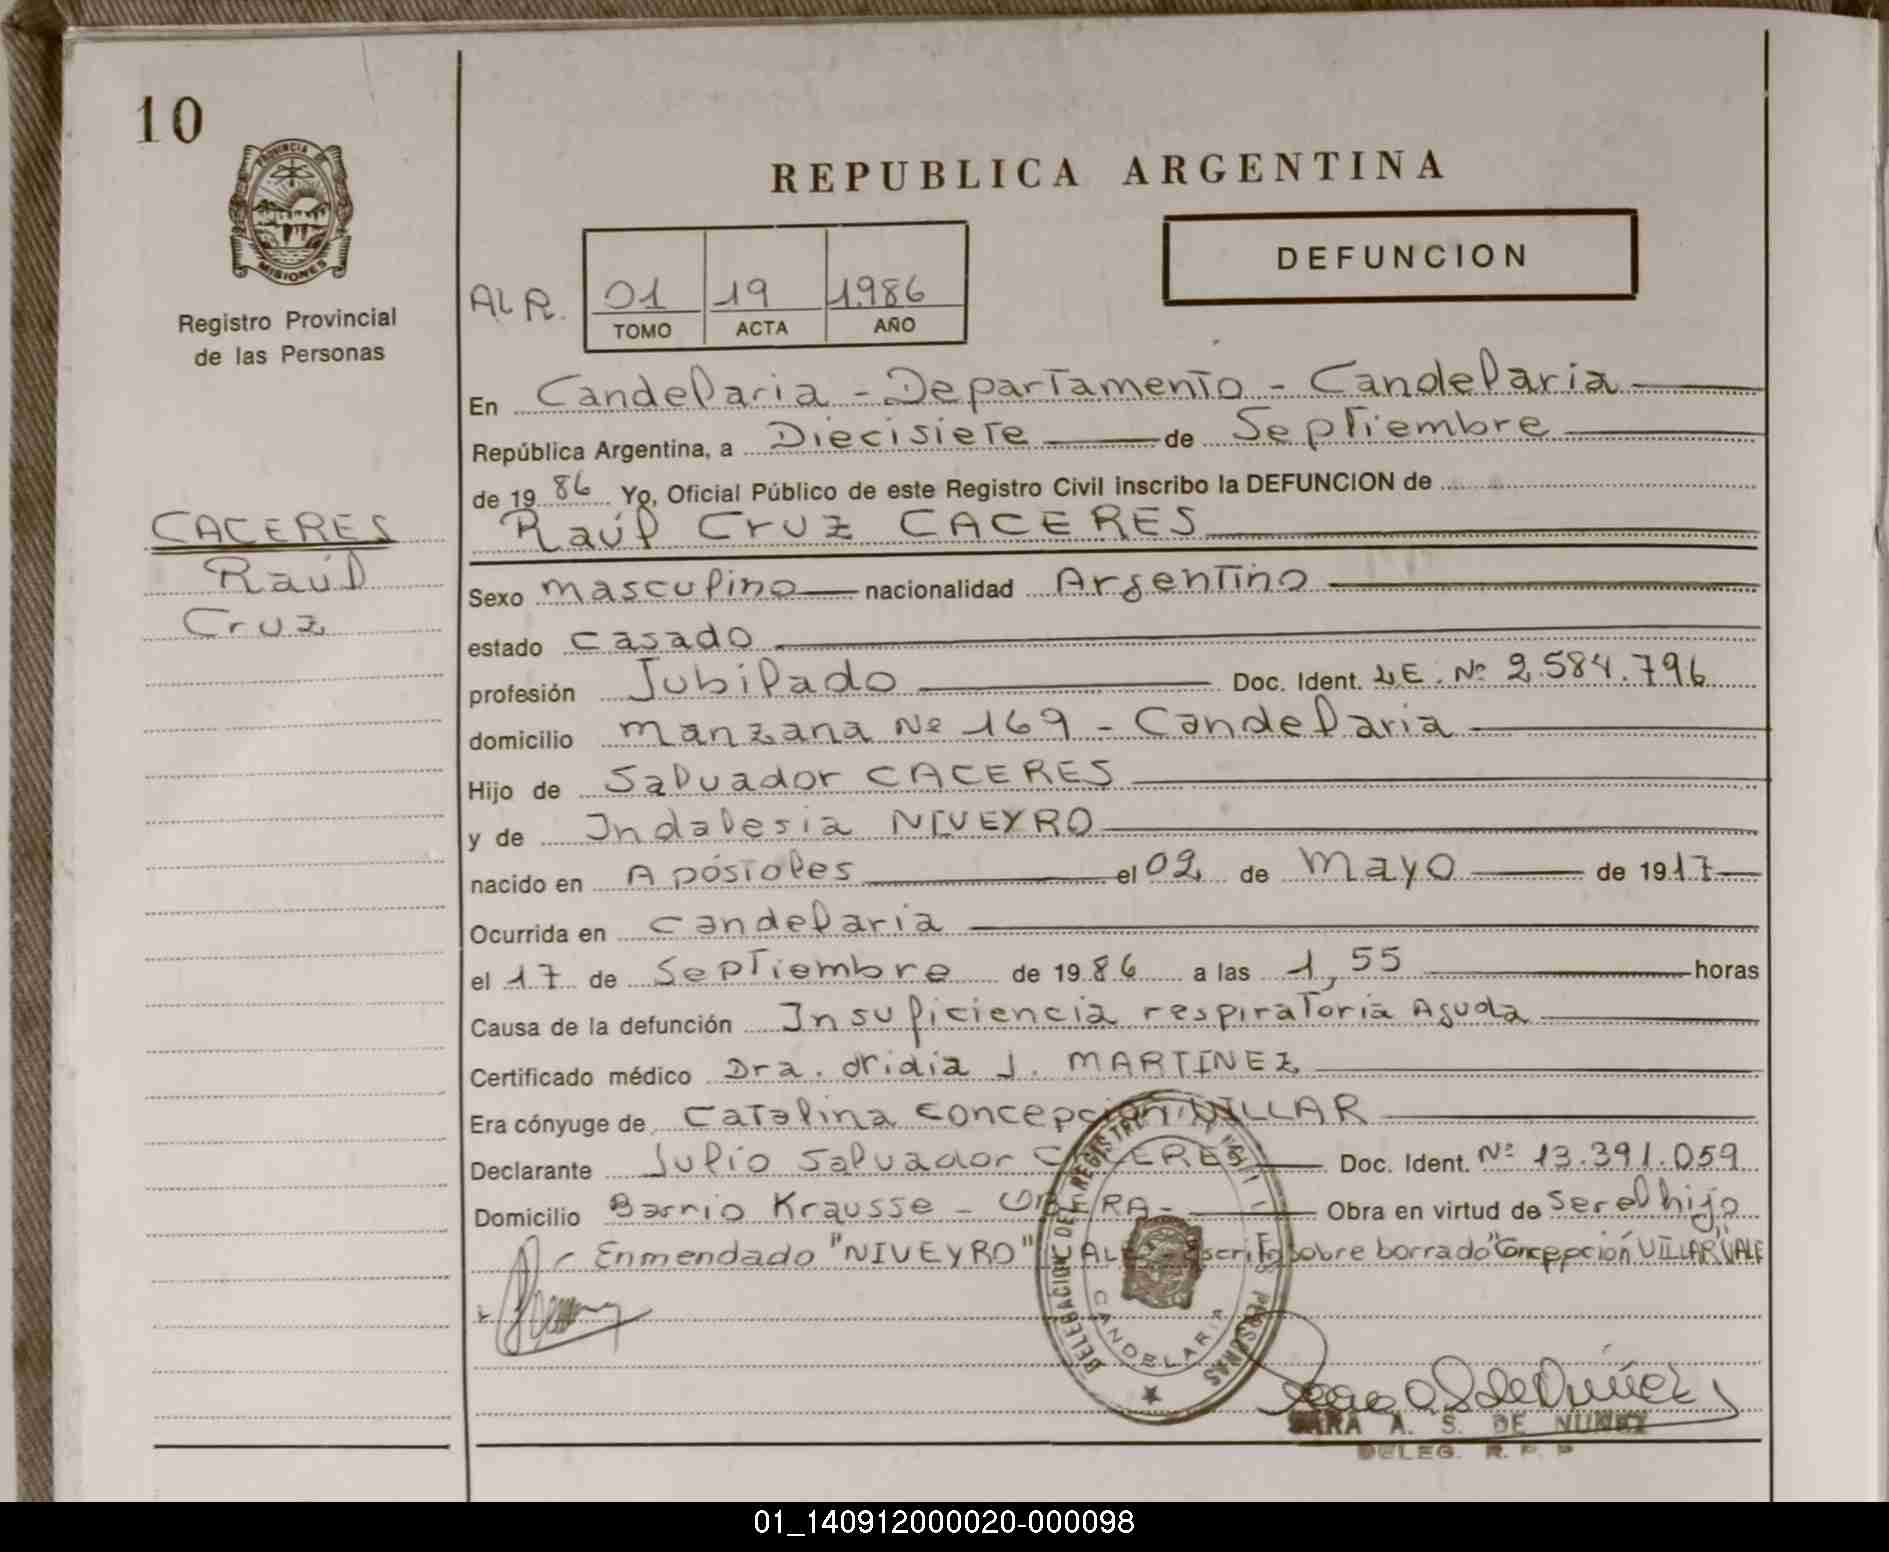 10
PROVINCIA DE
MISIONES
Registro Provincial
de las Personas
REPUBLICA ARGENTINA
DEFUNCION
AL R. 01 19 1986
TOMO ACTA AÑO
En Candelaria - Departamento - Candelaria
República Argentina, a Diecisiete de Septiembre
de 1986 Yo, Oficial Público de este Registro Civil inscribo la DEFUNCION de
Raúl Cruz CACERES
CACERES
Raúl
Cruz
Sexo masculino nacionalidad Argentino
estado casado
profesión Jubilado Doc. Ident. L.E. Nº 2.584.796
domicilio manzana Nº 169 - Candelaria
Hijo de Salvador CACERES
y de Indalesia NIVEYRO
nacido en Apóstoles el 02 de Mayo de 1917
Ocurrida en Candelaria
el 17 de Septiembre de 1986 a las 1,55 horas
Causa de la defunción Insuficiencia respiratoria Aguda
Certificado médico Dra. J. MARTINEZ
Era cónyuge de Catalina Concepción VILLAR
Declarante Julio Salvador CACERES Doc. Ident. Nº 13.391.059
Domicilio Barrio Krausse - Obra en virtud de ser el hijo
Enmendado "NIVEYRO" VALE - Escrito sobre borrado "Concepción VILLAR" VALE
DELEGACION DEL REGISTRO PERSONAS
CANDELARIA
SARA A. S. DE NUÑEZ
DELEG. R. P. P
01_140912000020-000098